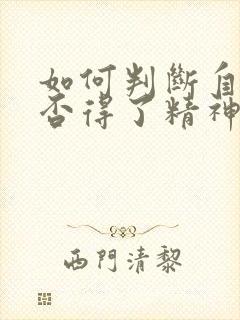 如何判斷自
否得了精神
西門清黎